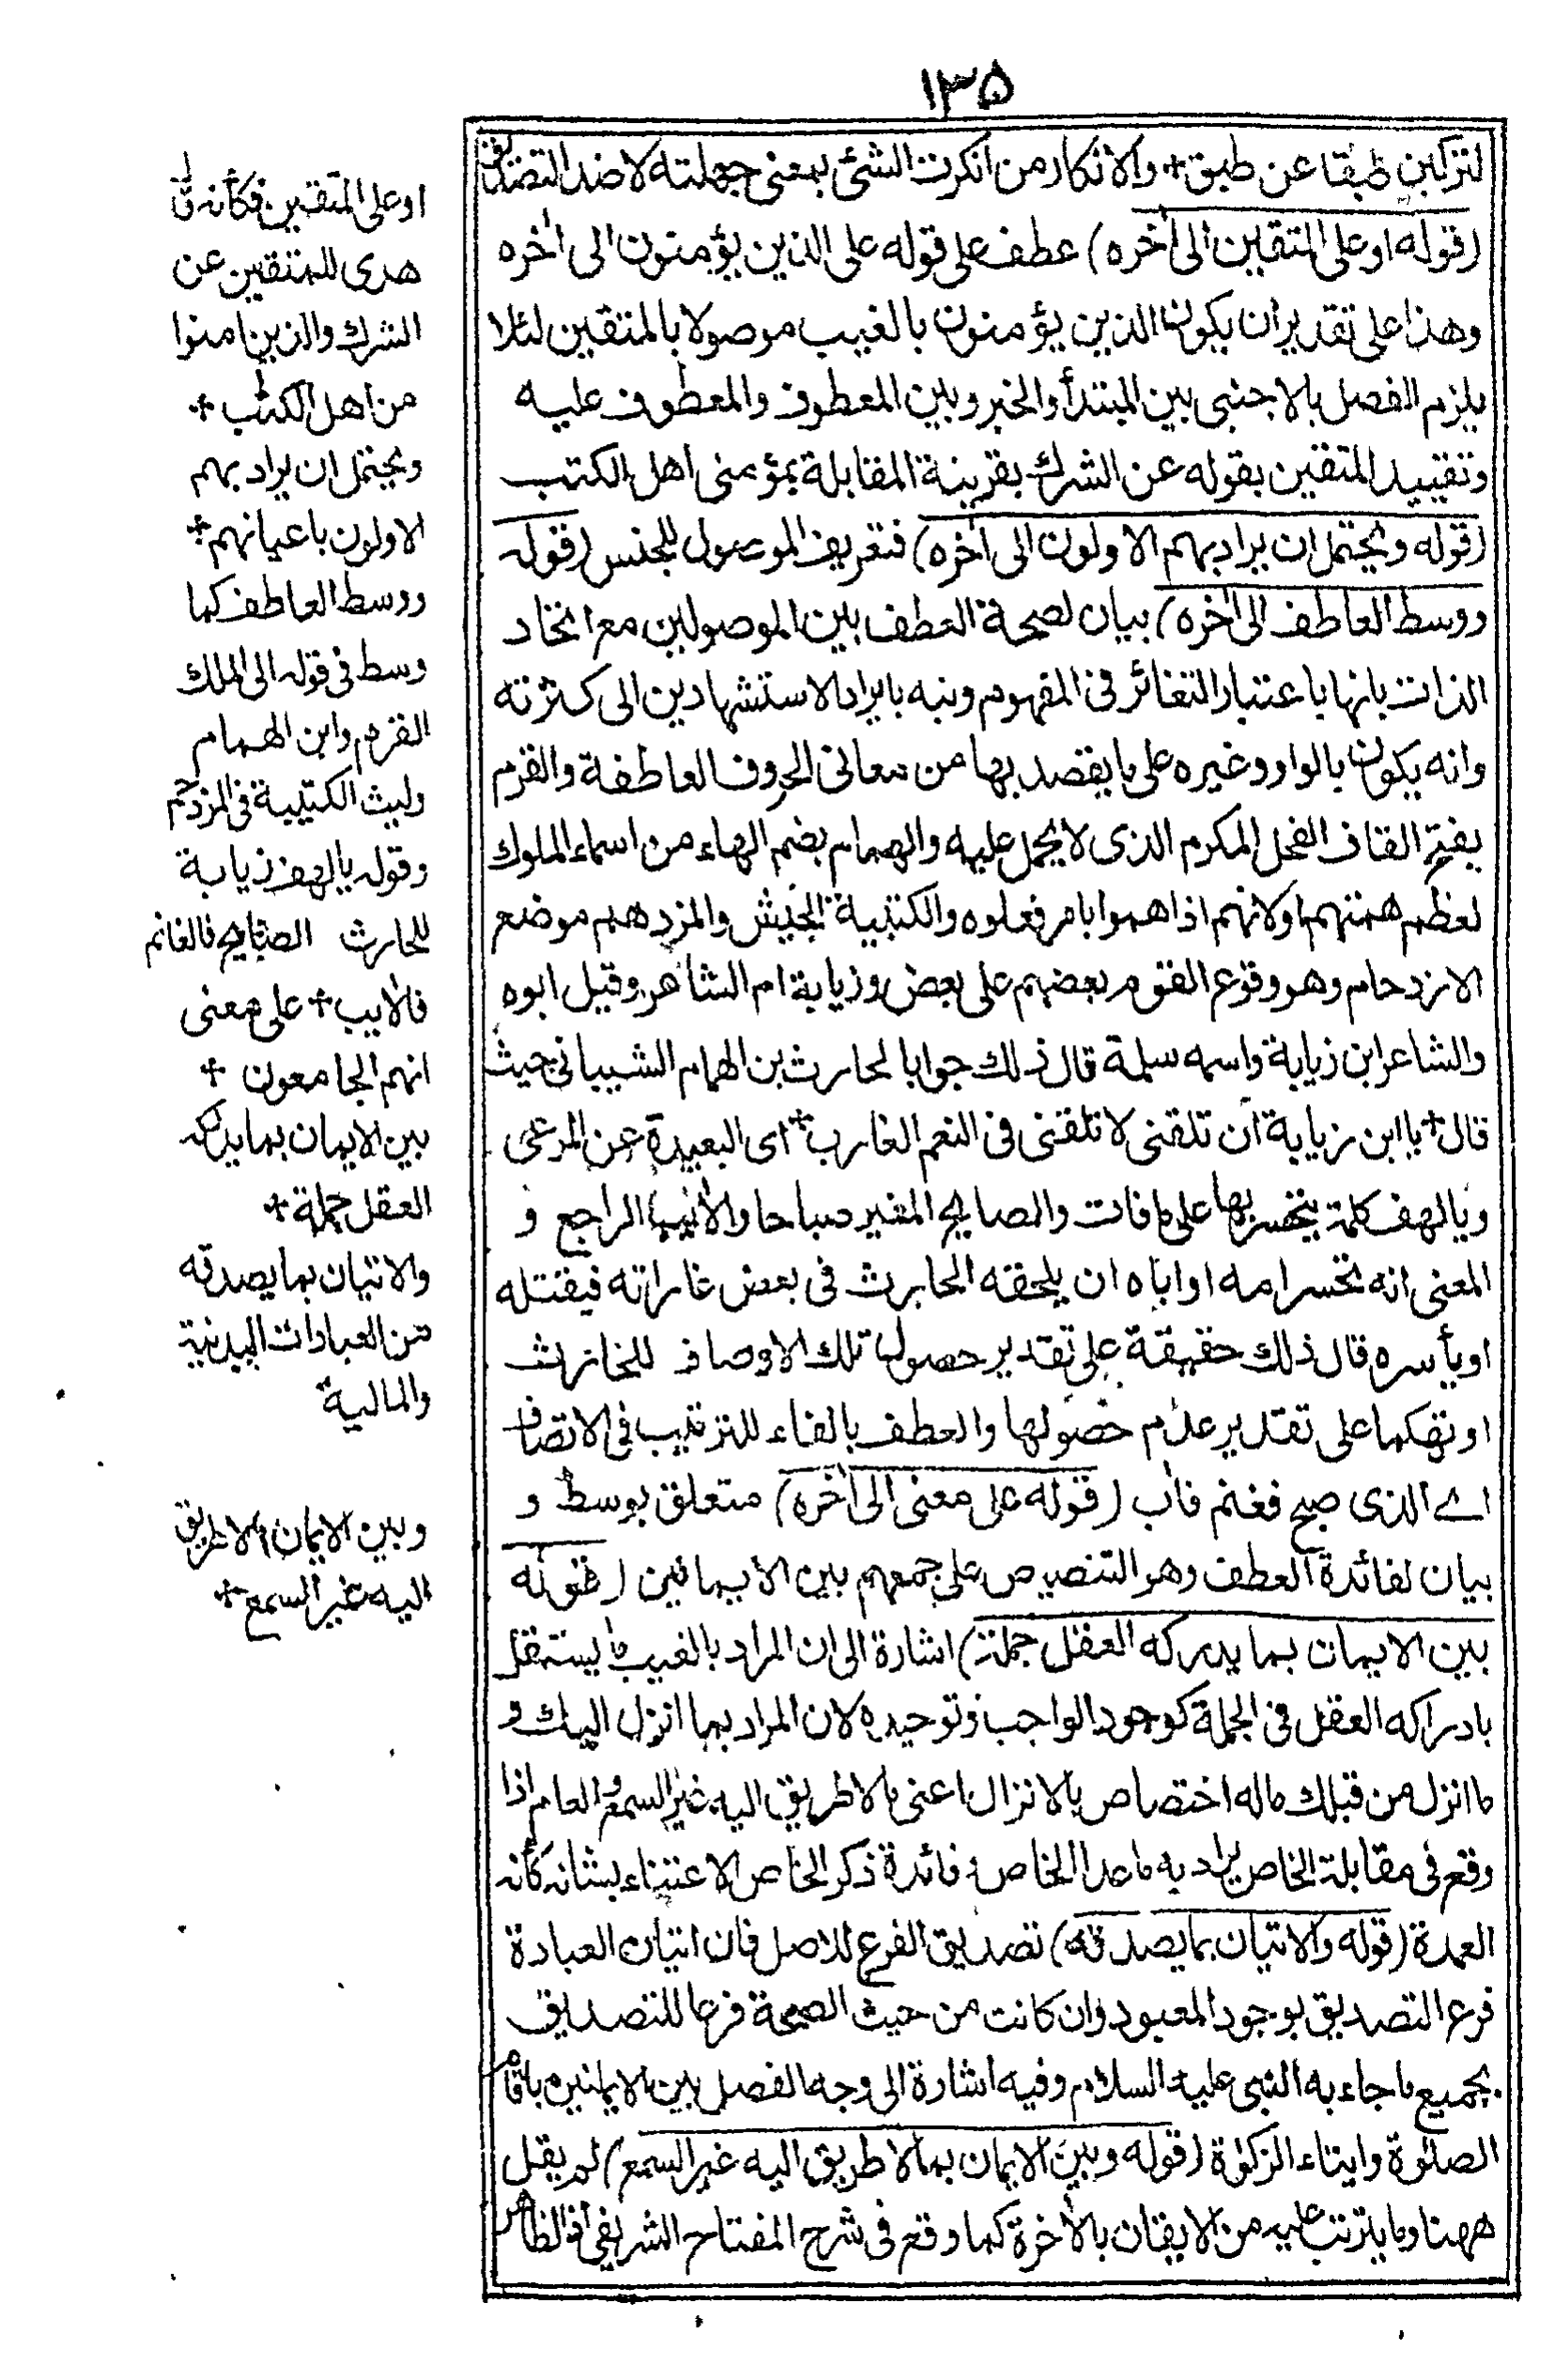 ١٣۵
لتركبن طبقا عن طبق+ والانكار من انكرت الشئ بمعنى جهلته لا ضد التصديق
(قوله او على المتقين الى أخره) عطف على قوله على الذين يؤمنون الى أخره
وهذا على تقدير ان يكون الذين يؤمنون بالغيب موصولا بالمتقين لئلا
يلزم الفصل بالاجنبى بين المبتدأ والخبر وبين المعطوف والمعطوف عليه
وتقييد المتقين بقوله عن الشرك بقرينة المقابلة بمؤمنى اهل الكتب
(قوله ويحتمل ان يراد بهم الاولون الى أخره) فتعريف الموصول للجنس (قوله
ووسط العاطف الى أخره) بيان لصحة العطف بين الموصولين مع اتحاد
الذات بانها باعتبار التغائر فى المفهوم ونبه بايراد الاستشهادين الى كثرته
وانه يكون بالواو وغيره على ما يقصد بها من معانى الحروف العاطفة والقرم
بفتح القاف الفحل المكرم الذى لا يحمل عليه والهمام بضم الهاء من اسماء الملوك
لعظم همتهم او لانهم اذا هموا بامر فعلوه والكتيبة الجيش والمزدحم موضع
الازدحام وهو وقوع القوم بعضهم على بعض وزيابة ام الشاعر وقيل ابوه
والشاعر ابن زيابة واسمه سلمة قال ذلك جوابا لحارث بن الهمام الشيبانى حيث
قال+ يا ابن زيابة ان تلقنى لا تلقنى فى النعم الغارب+ اى البعيدة عن المرعى
ويا لهف كلمة يتحسر بها على ما فات والصابح المغير صباحا والأئب الراجع و
المعنى انه تحسر امه او اباه ان يلحقه الحارث فى بعض غاراته فيقتله
او يأسره قال ذلك حقيقة على تقدير حصول تلك الاوصاف للحارث
او تهكما على تقدير عدم حصولها والعطف بالفاء للترتيب فى الاتصاف
اے الذى صبح فغنم فأب (قوله على معنى الى أخره) متعلق بوسط و
بيان لفائدة العطف وهو التنصيص على جمعهم بين الايمانين (قوله
بين الايمان بما يدركه العقل جملة) اشارة الى ان المراد بالغيب ما يستقل
بادراكه العقل فى الجملة كوجود الواجب وتوحيده لان المراد بما انزل اليك و
ما انزل من قبلك ماله اختصاص بالانزال اعنى ما لا طريق اليه غير السمع والعام اذا
وقع فى مقابلة الخاص يراد به ما عدا الخاص وفائدة ذكر الخاص الاعتناء بشانه كأنه
العمدة (قوله والاتيان بما يصدقه) تصديق الفرع للاصل فان اتيان العبادة
فرع التصديق بوجود المعبود وان كانت من حيث الصحة فرعا للتصديق
بجميع ما جاء به النبى عليه السلام وفيه اشارة الى وجه الفصل بين الايمانين باقام
الصلوة وايتاء الزكوة (قوله وبين الايمان بما لا طريق اليه غير السمع) لم يقل
ههنا وما يترتب عليه من الايقان بالأخرة كما وقع فى شرح المفتاح الشريفى اذ الظاهر
او على المتقين فكأنه قال
هدى للمتقين عن
الشرك والذين امنوا
من اهل الكتب+
ويحتمل ان يراد بهم
الاولون باعيانهم+
ووسط العاطف كما
وسط فى قوله الى الملك
القرم وابن الهمام
وليث الكتيبة فى المزدحم
وقوله يا لهف زيابة
للحارث الصابح فالغانم
فالأيب+ على معنى
انهم الجامعون+
بين الايمان بما يدركه
العقل جملة+
والاتيان بما يصدقه
من العبادات البدنية
والمالية
وبين الايمان بما لا طريق
اليه غير السمع+